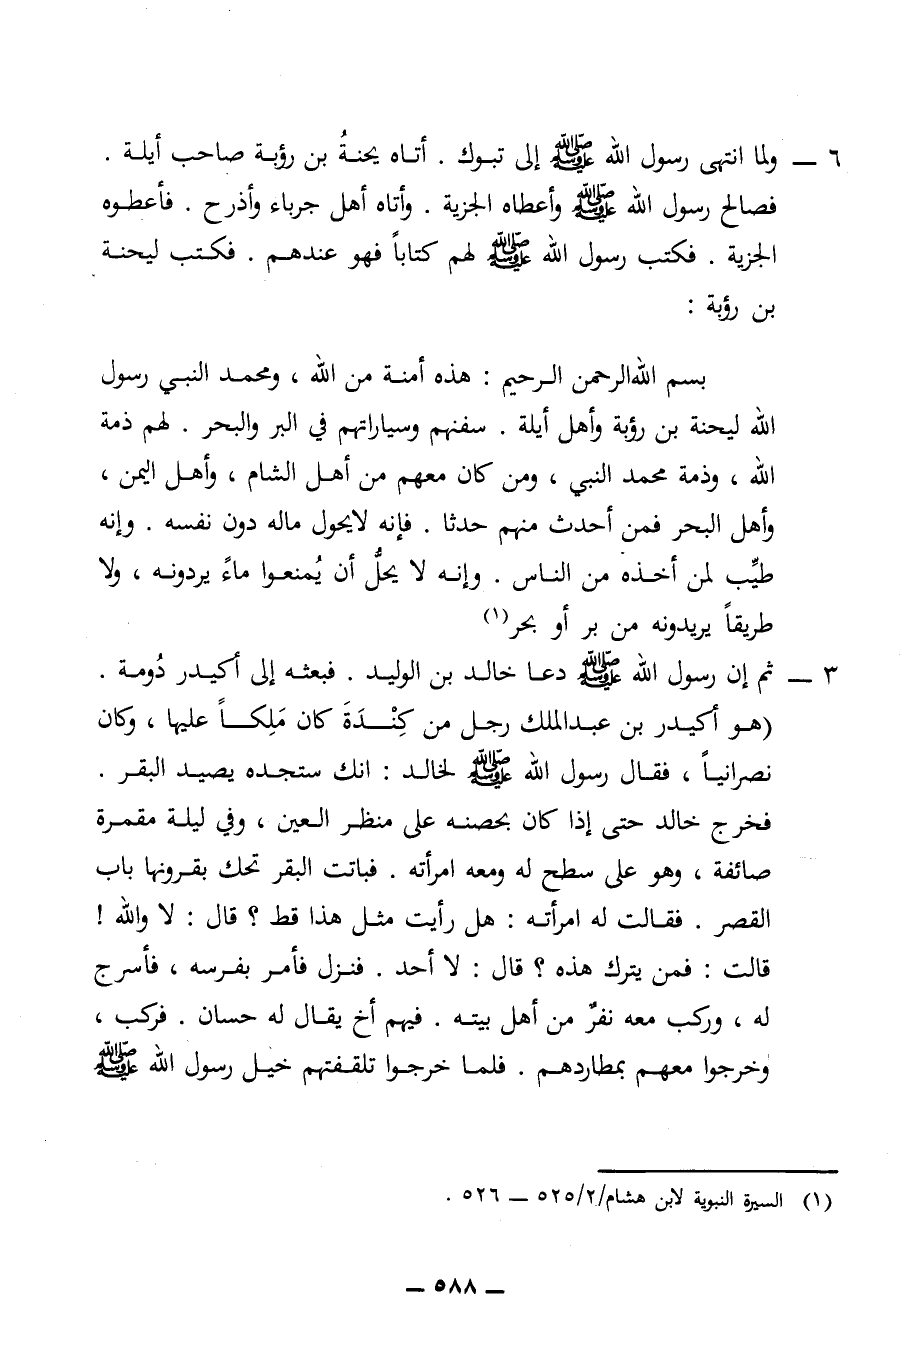 ٦ ــ ولما انتهى رسول الله ﷺ إلى تبوك . أتاه يحنةُ بن رؤبة صاحب أيلة .
فصالح رسول الله ﷺ وأعطاه الجزية . وأتاه أهل جرباء وأذرح . فأعطوه
الجزية . فكتب رسول الله ﷺ لهم كتاباً فهو عندهم . فكتب ليحنة
بن رؤبة :
بسم الله الرحمن الرحيم : هذه أمنة من الله ، ومحمد النبي رسول
الله ليحنة بن رؤبة وأهل أيلة . سفنهم وسياراتهم في البر والبحر . لهم ذمة
الله ، وذمة محمد النبي ، ومن كان معهم من أهل الشام ، وأهل اليمن ،
وأهل البحر فمن أحدث منهم حدثا . فإنه لايحول ماله دون نفسه . وإنه
طيِّب لمن أخذه من الناس . وإنه لا يحلُّ أن يُمنعوا ماءً يردونه ، ولا
طريقاً يريدونه من بر أو بحر(١)
٣ ــ ثم إن رسول الله ﷺ دعا خالد بن الوليد . فبعثه إلى أكيدر دُومة .
(هو أكيدر بن عبدالملك رجل من كِنْدَةَ كان مَلِكاً عليها ، وكان
نصرانياً ، فقال رسول الله ﷺ لخالد : انك ستجده يصيد البقر .
فخرج خالد حتى إذا كان بحصنه على منظر العين ، وفي ليلة مقمرة
صائفة ، وهو على سطح له ومعه امرأته . فباتت البقر تحك بقرونها باب
القصر . فقالت له امرأته : هل رأيت مثل هذا قط ؟ قال : لا والله !
قالت : فمن يترك هذه ؟ قال : لا أحد . فنزل فأمر بفرسه ، فأسرج
له ، وركب معه نفرٌ من أهل بيته . فيهم أخ يقال له حسان . فركب ،
وخرجوا معهم بمطاردهم . فلما خرجوا تلقفتهم خيل رسول الله ﷺ
(١) السيرة النبوية لابن هشام/٥٢٥/٢ ــ ٥٢٦ .
ــ ٥٨٨ ــ